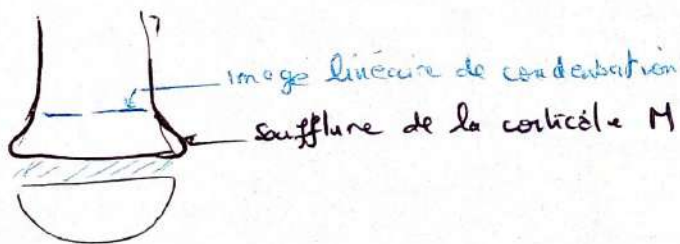 image linéaire de condensation
soufflure de la corticale M